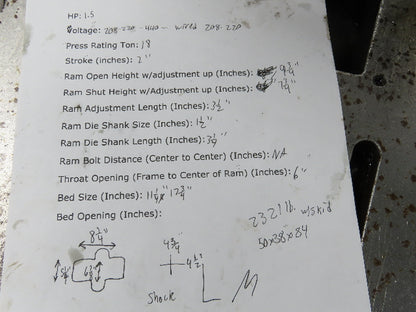 HP: 1.5
Voltage: 208-230-440- wired 208-220
Press Rating Ton: 18
Stroke (inches): 2"
Ram Open Height w/adjustment up (Inches): 9 3/4"
Ram Shut Height w/adjustment up (Inches): 7 3/4"
Ram Adjustment Length (Inches): 3 1/2"
Ram Die Shank Size (Inches): 1 1/2"
Ram Die Shank Length (Inches):
Ram Bolt Distance (Center to Center) (Inches): NA
Throat Opening (Frame to Center of Ram) (Inches): 6"
Bed Size (Inches):
Bed Opening (Inches):
2321 lb. w/skid
50x38x84
8 3/4"
4 1/2"
Shock